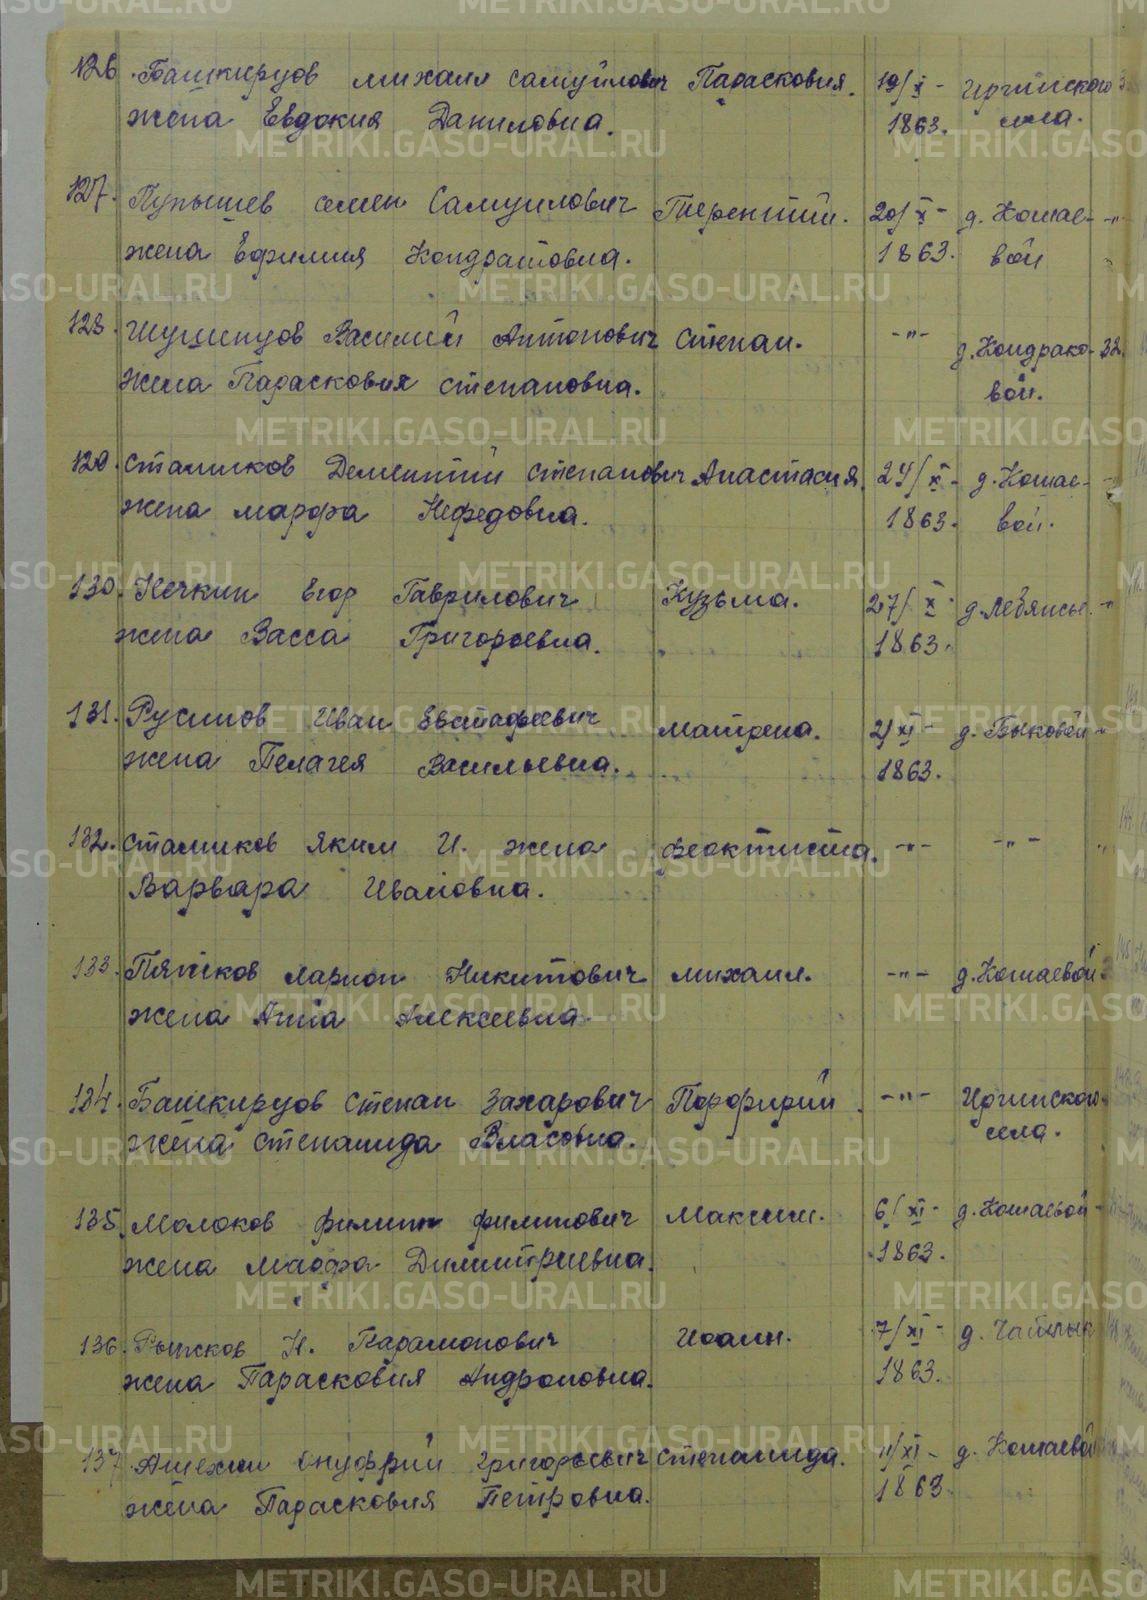 126. Башкирцов михаил самуйлович Парасковия. 19/X - Иргинского
жена Евдокия Даниловна. 1863. села.
127. Пупышев семен Самуилович Терентий. 20/X - д. Кошае- -"-
жена Ефимия Кондратовна. 1863. вой
128. Шушинцов Василий Антонович Степан. -"- д. Кондрако- 32.
жена Парасковия степановна. вой.
129. Сташков Дементий степанович Анастасия. 24/X - д. Кошае- -
жена марфа Нефедовна. 1863. вой.
130. Нечкин Егор Гаврилович Кузьма. 27/X - д. Лебяжье. -"
жена Васса Григорьевна. 1863.
131. Русинов Иван Евстафеевич матрена. 2/XI - д. Быковой -"
жена Пелагея Васильевна. 1863.
132. Сташков Яким И. жена феоктиста. -"- -"- "
Варвара Ивановна.
133. Пятков ларион Никитович михаил. -"- д. Кошаевой
жена Анна Алексеевна
134. Башкирцов степан Захарович Порфирий. -"- Иргинского
жена степанида Власовна. села.
135. Молоков филипп филипович Максим. 6/XI - д. Кошаевой -
жена марфа Димитриевна. 1863.
136. Рыжков Н. Парамонович Иоанн. 7/XI - д. Чайлык
жена Парасковия Андроновна. 1863.
137. Онуфрий григорьевич степанида. 11/XI - д. Кошаевой
жена Парасковия Петровна. 1863
METRIKI.GASO-URAL.RU